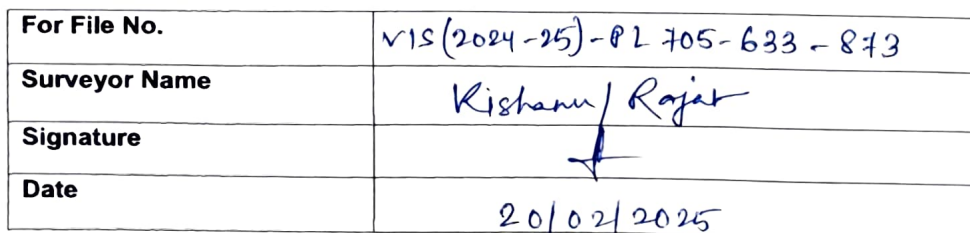 For File No. VIS(2024-25)-PL705-633-873
Surveyor Name Kishanu/Rajat
Signature
Date 20/02/2025